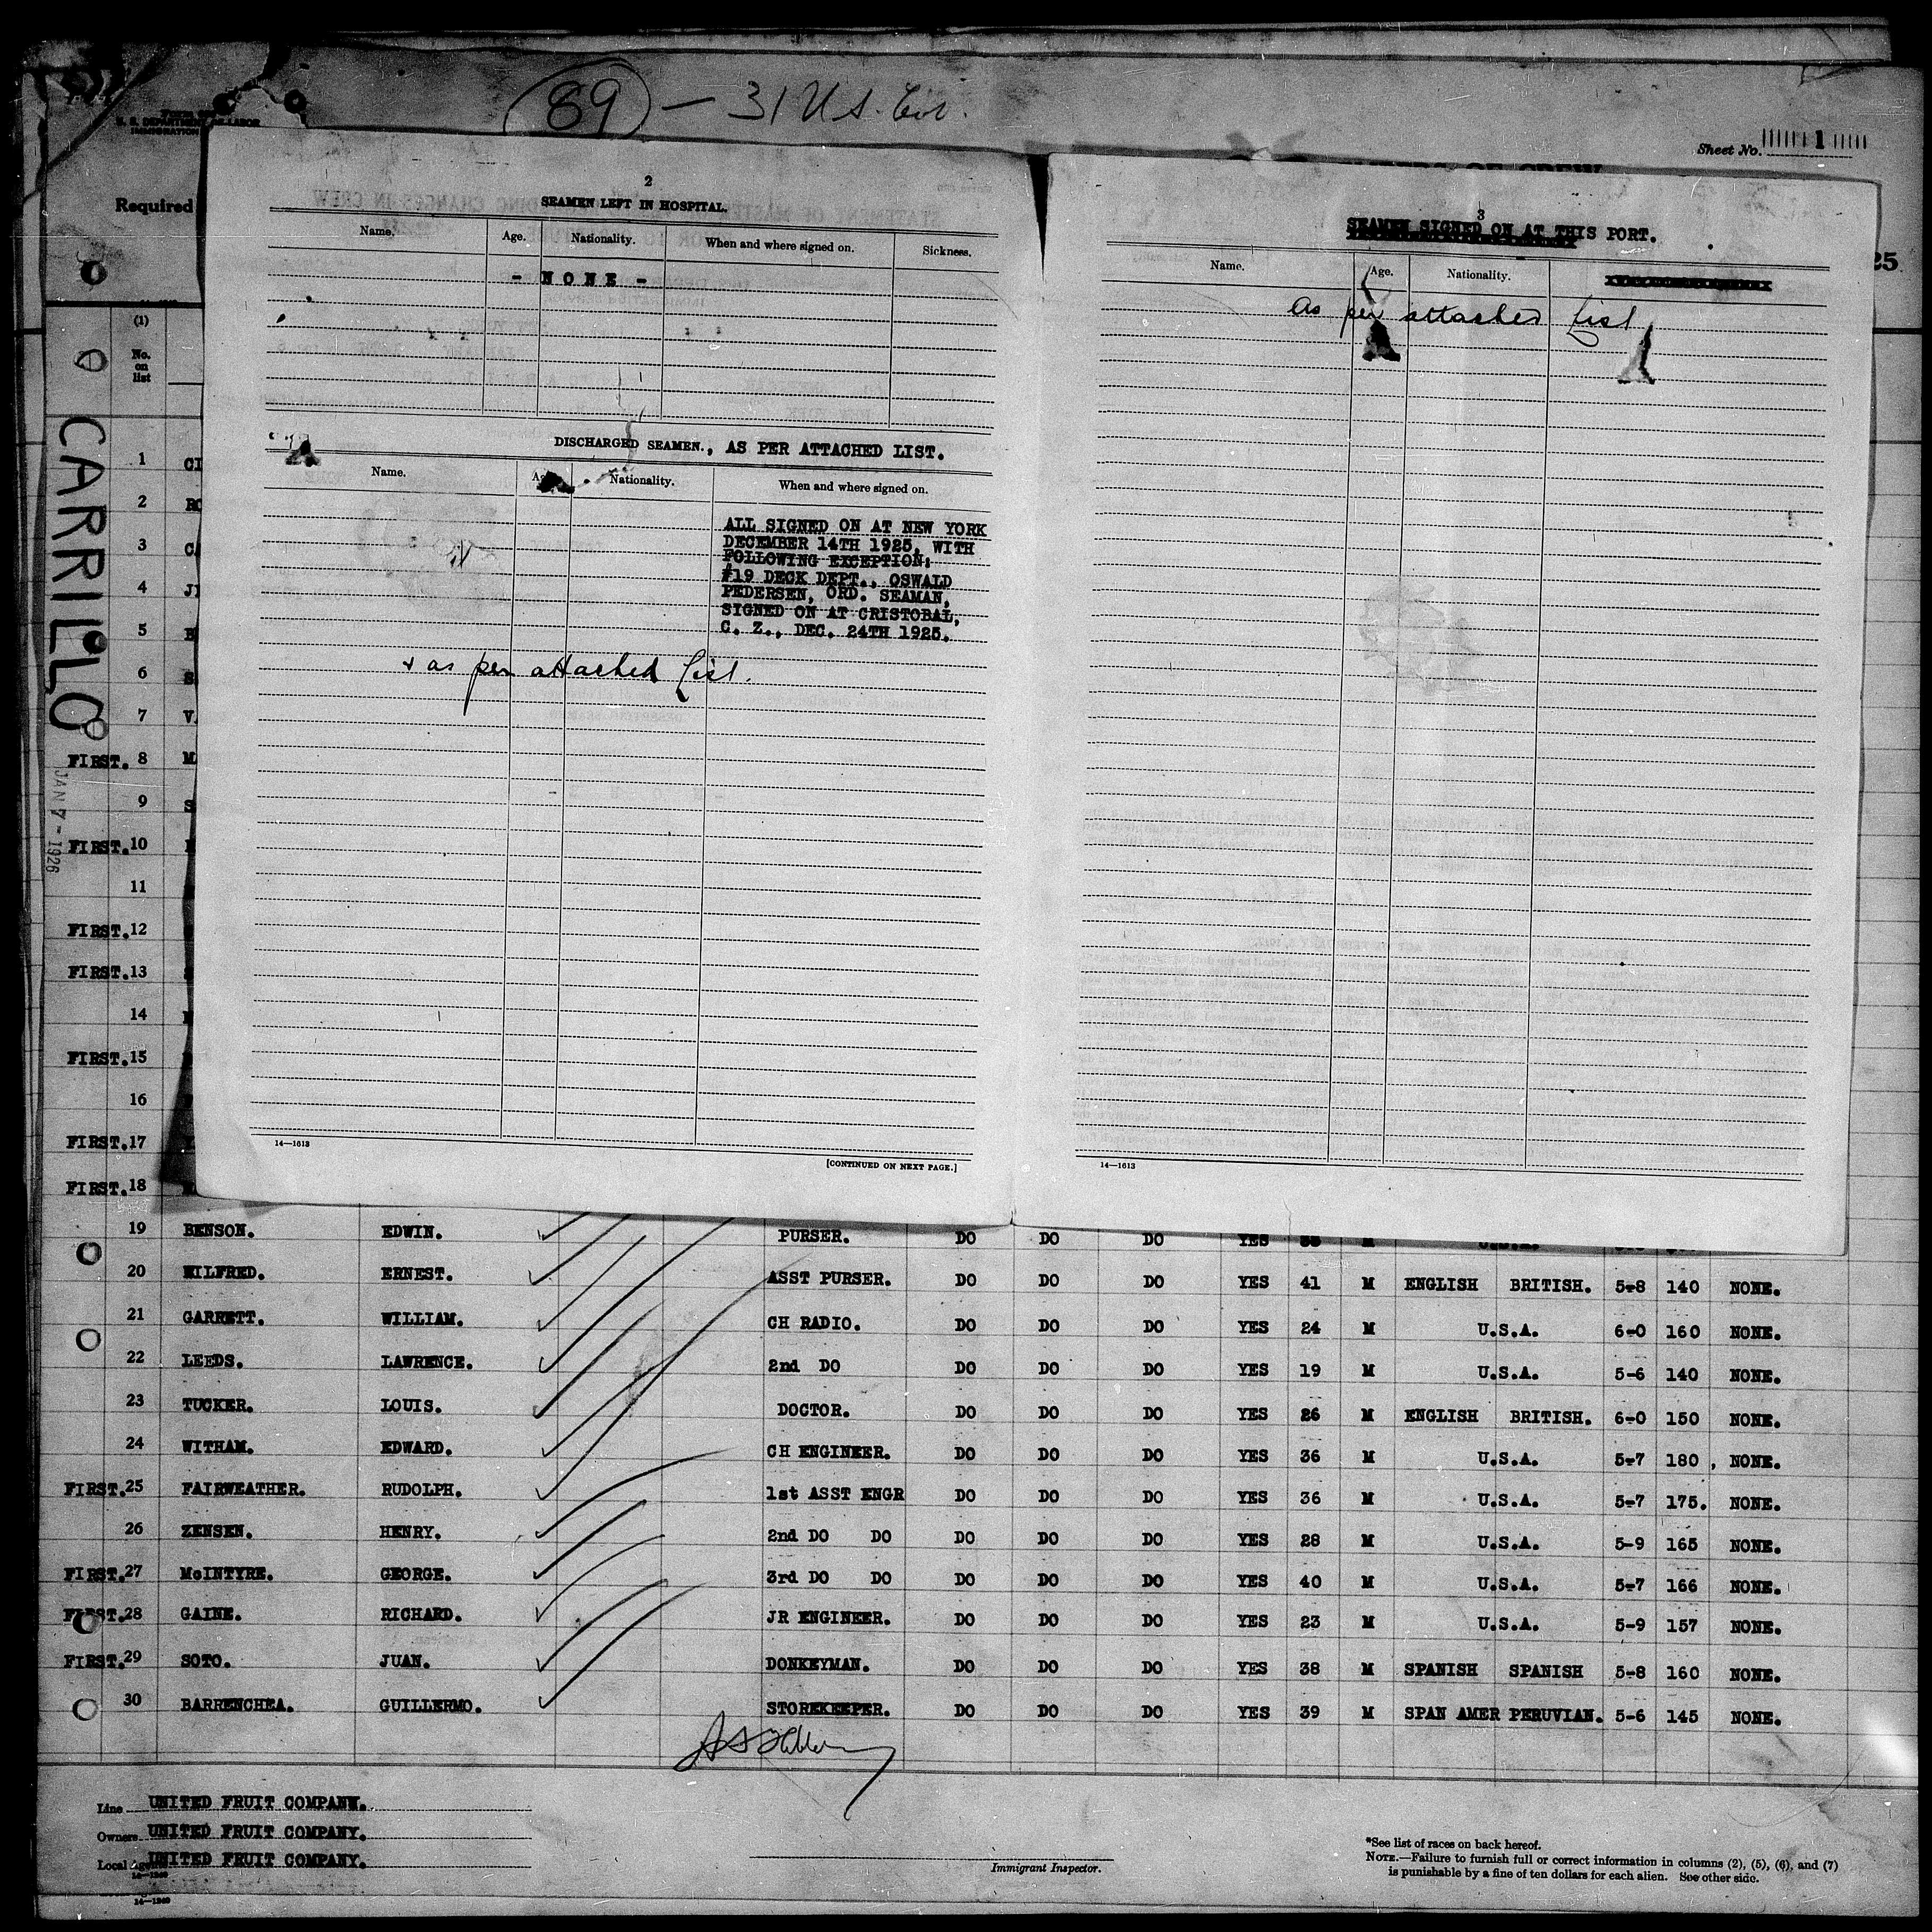 89 — 31 U.S. Cit.
U. S. DEPARTMENT OF LABOR
IMMIGRATION
Sheet No. 1
Required
25
(1)
No.
on
list
CARRILLO
JAN 7 - 1926
2
SEAMEN LEFT IN HOSPITAL.
Name. Age. Nationality. When and where signed on. Sickness.
- NONE -
DISCHARGED SEAMEN., AS PER ATTACHED LIST.
Name. Nationality. When and where signed on.
ALL SIGNED ON AT NEW YORK
DECEMBER 14TH 1925, WITH
FOLLOWING EXCEPTION:
#19 DECK DEPT., OSWALD
PEDERSEN, ORD. SEAMAN,
SIGNED ON AT CRISTOBAL,
C. Z., DEC. 24TH 1925.
+ as per attached list.
14—1613
[CONTINUED ON NEXT PAGE.]
3
SEAMEN SIGNED ON AT THIS PORT.
Name. Age. Nationality.
As per attached list
14—1613
1
2
3
4
5
6
7
FIRST. 8
9
FIRST. 10
11
FIRST. 12
FIRST. 13
14
FIRST. 15
16
FIRST. 17
FIRST. 18
19 BENSON. EDWIN. PURSER. DO DO DO YES M
20 EILFRED. ERNEST. ASST PURSER. DO DO DO YES 41 M ENGLISH BRITISH. 5-8 140 NONE.
21 GARRETT. WILLIAM. CH RADIO. DO DO DO YES 24 M U.S.A. 6-0 160 NONE.
22 LEEDS. LAWRENCE. 2nd DO DO DO DO YES 19 M U.S.A. 5-6 140 NONE.
23 TUCKER. LOUIS. DOCTOR. DO DO DO YES 26 M ENGLISH BRITISH. 6-0 150 NONE.
24 WITHAM. EDWARD. CH ENGINEER. DO DO DO YES 36 M U.S.A. 5-7 180 NONE.
FIRST. 25 FAIRWEATHER. RUDOLPH. 1st ASST ENGR DO DO DO YES 36 M U.S.A. 5-7 175. NONE.
26 ZENSEN. HENRY. 2nd DO DO DO DO DO YES 28 M U.S.A. 5-9 165 NONE.
FIRST. 27 McINTYRE. GEORGE. 3rd DO DO DO DO DO YES 40 M U.S.A. 5-7 166 NONE.
FIRST. 28 GAINE. RICHARD. JR ENGINEER. DO DO DO YES 23 M U.S.A. 5-9 157 NONE.
FIRST. 29 SOTO. JUAN. DONKEYMAN. DO DO DO YES 38 M SPANISH SPANISH 5-8 160 NONE.
30 BARRENCHEA. GUILLERMO. STOREKEEPER. DO DO DO YES 39 M SPAN AMER PERUVIAN. 5-6 145 NONE.
Line UNITED FRUIT COMPANY.
Owners UNITED FRUIT COMPANY.
Local Agents UNITED FRUIT COMPANY.
14—1240
Immigrant Inspector.
*See list of races on back hereof.
NOTE.—Failure to furnish full or correct information in columns (2), (5), (6), and (7)
is punishable by a fine of ten dollars for each alien. See other side.